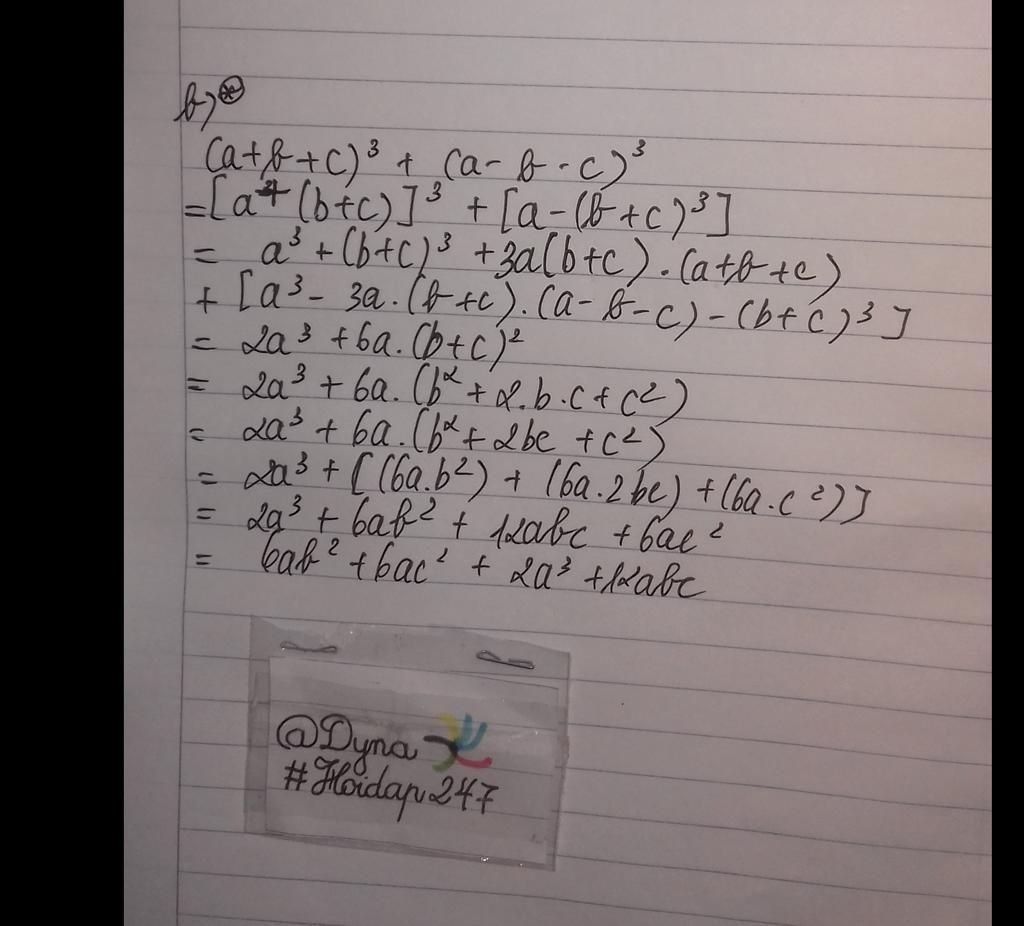 b) *
(a+b+c)³ + (a-b-c)³
=[a+(b+c)]³ + [a-(b+c)³]
= a³+(b+c)³ +3a(b+c).(a+b+c)
+ [a³- 3a.(b+c).(a-b-c)-(b+c)³]
= 2a³ +6a.(b+c)²
= 2a³ + 6a.(b²+2.b.c+c²)
= 2a³ + 6a.(b²+2bc +c²)
= 2a³ + [(6a.b²) + (6a.2bc) +(6a.c²)]
= 2a³ + 6ab² + 12abc +6ac²
= 6ab² +6ac² + 2a³ +12abc
@Dyna
#Hoidap247